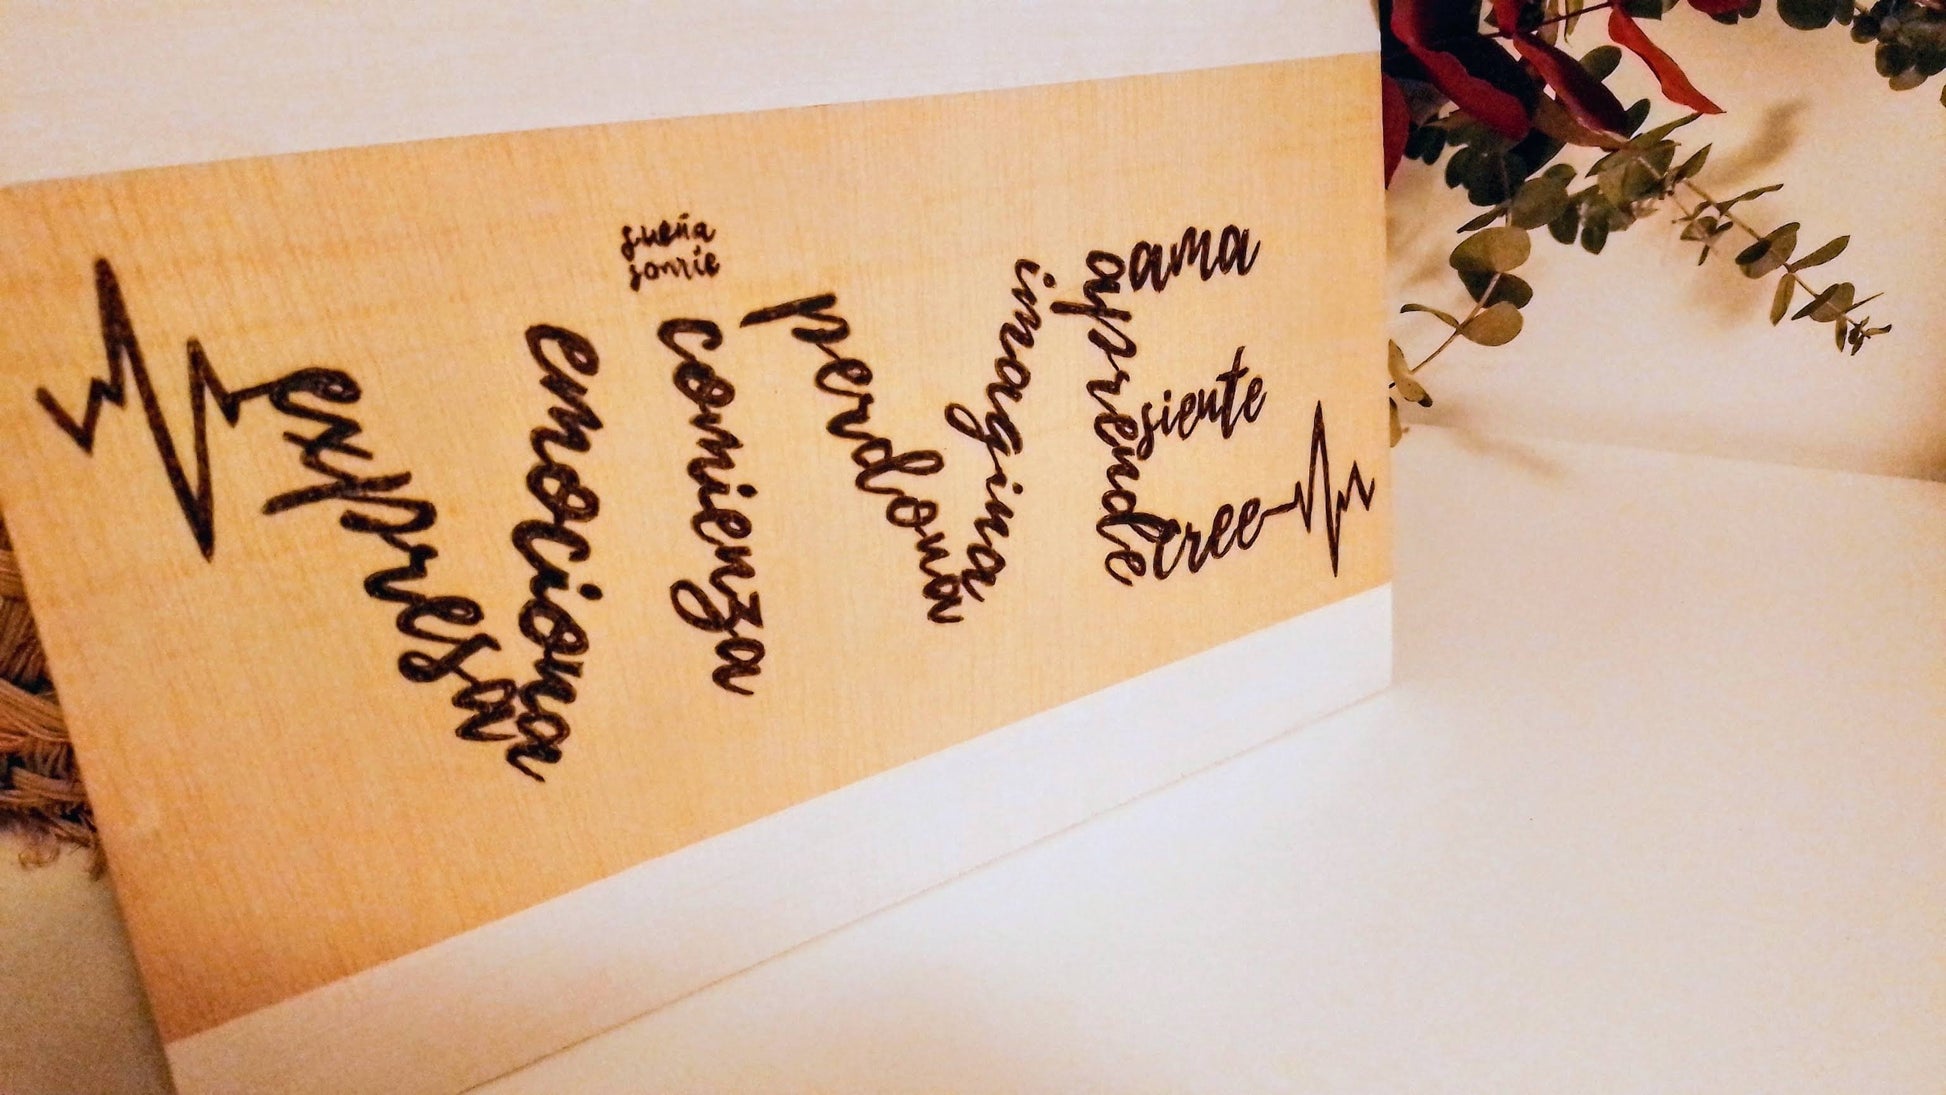 expresa
emociona
sueña
sonríe
comienza
perdona
imagina
aprende
ama
siente
cree